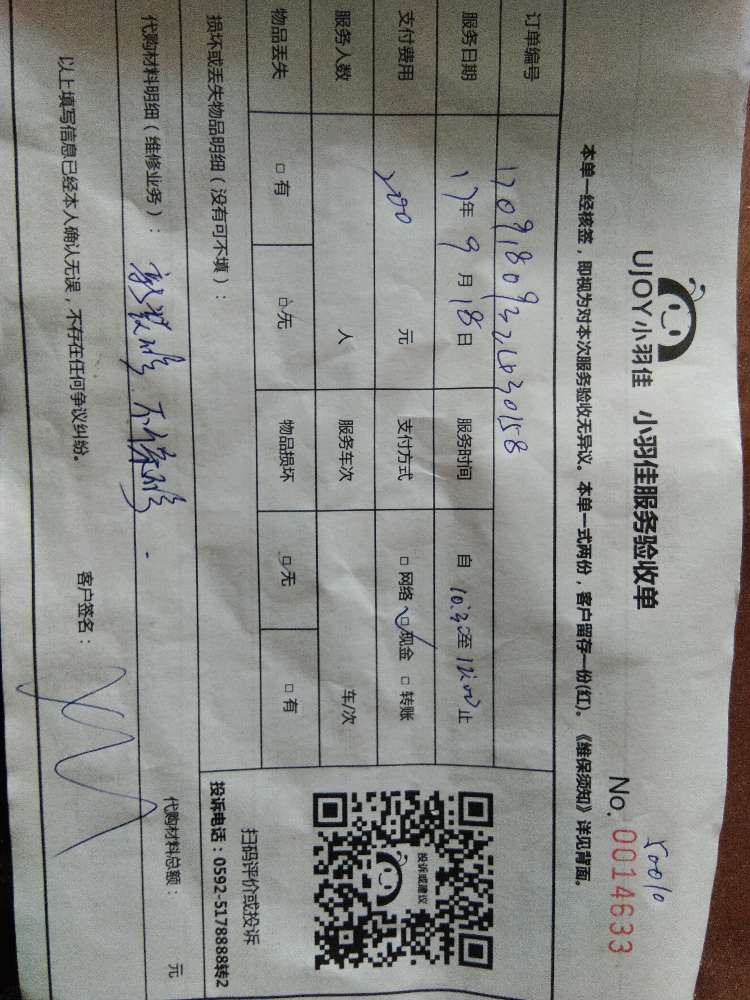 UJOY小羽佳 小羽佳服务验收单
50010
No. 0014633
本单一经核签，即视为对本次服务验收无异议。本单一式两份，客户留存一份(红)。《维保须知》详见背面。
订单编号
服务日期 17年9月18日 服务时间 自 10:30至 12:00止
支付费用 200 元 支付方式 □ 网络 □ 现金 □ 转账
服务人数 人 服务车次 车/次
物品丢失 □ 有 □ 无 物品损坏 □ 无 □ 有
损坏或丢失物品明细（没有可不填）：
投诉或建议
扫码评价或投诉
投诉电话：0592-5178888转2
代购材料明细（维修业务）：
代购材料总额： 元
以上填写信息已经本人确认无误，不存在任何争议纠纷。 客户签名：